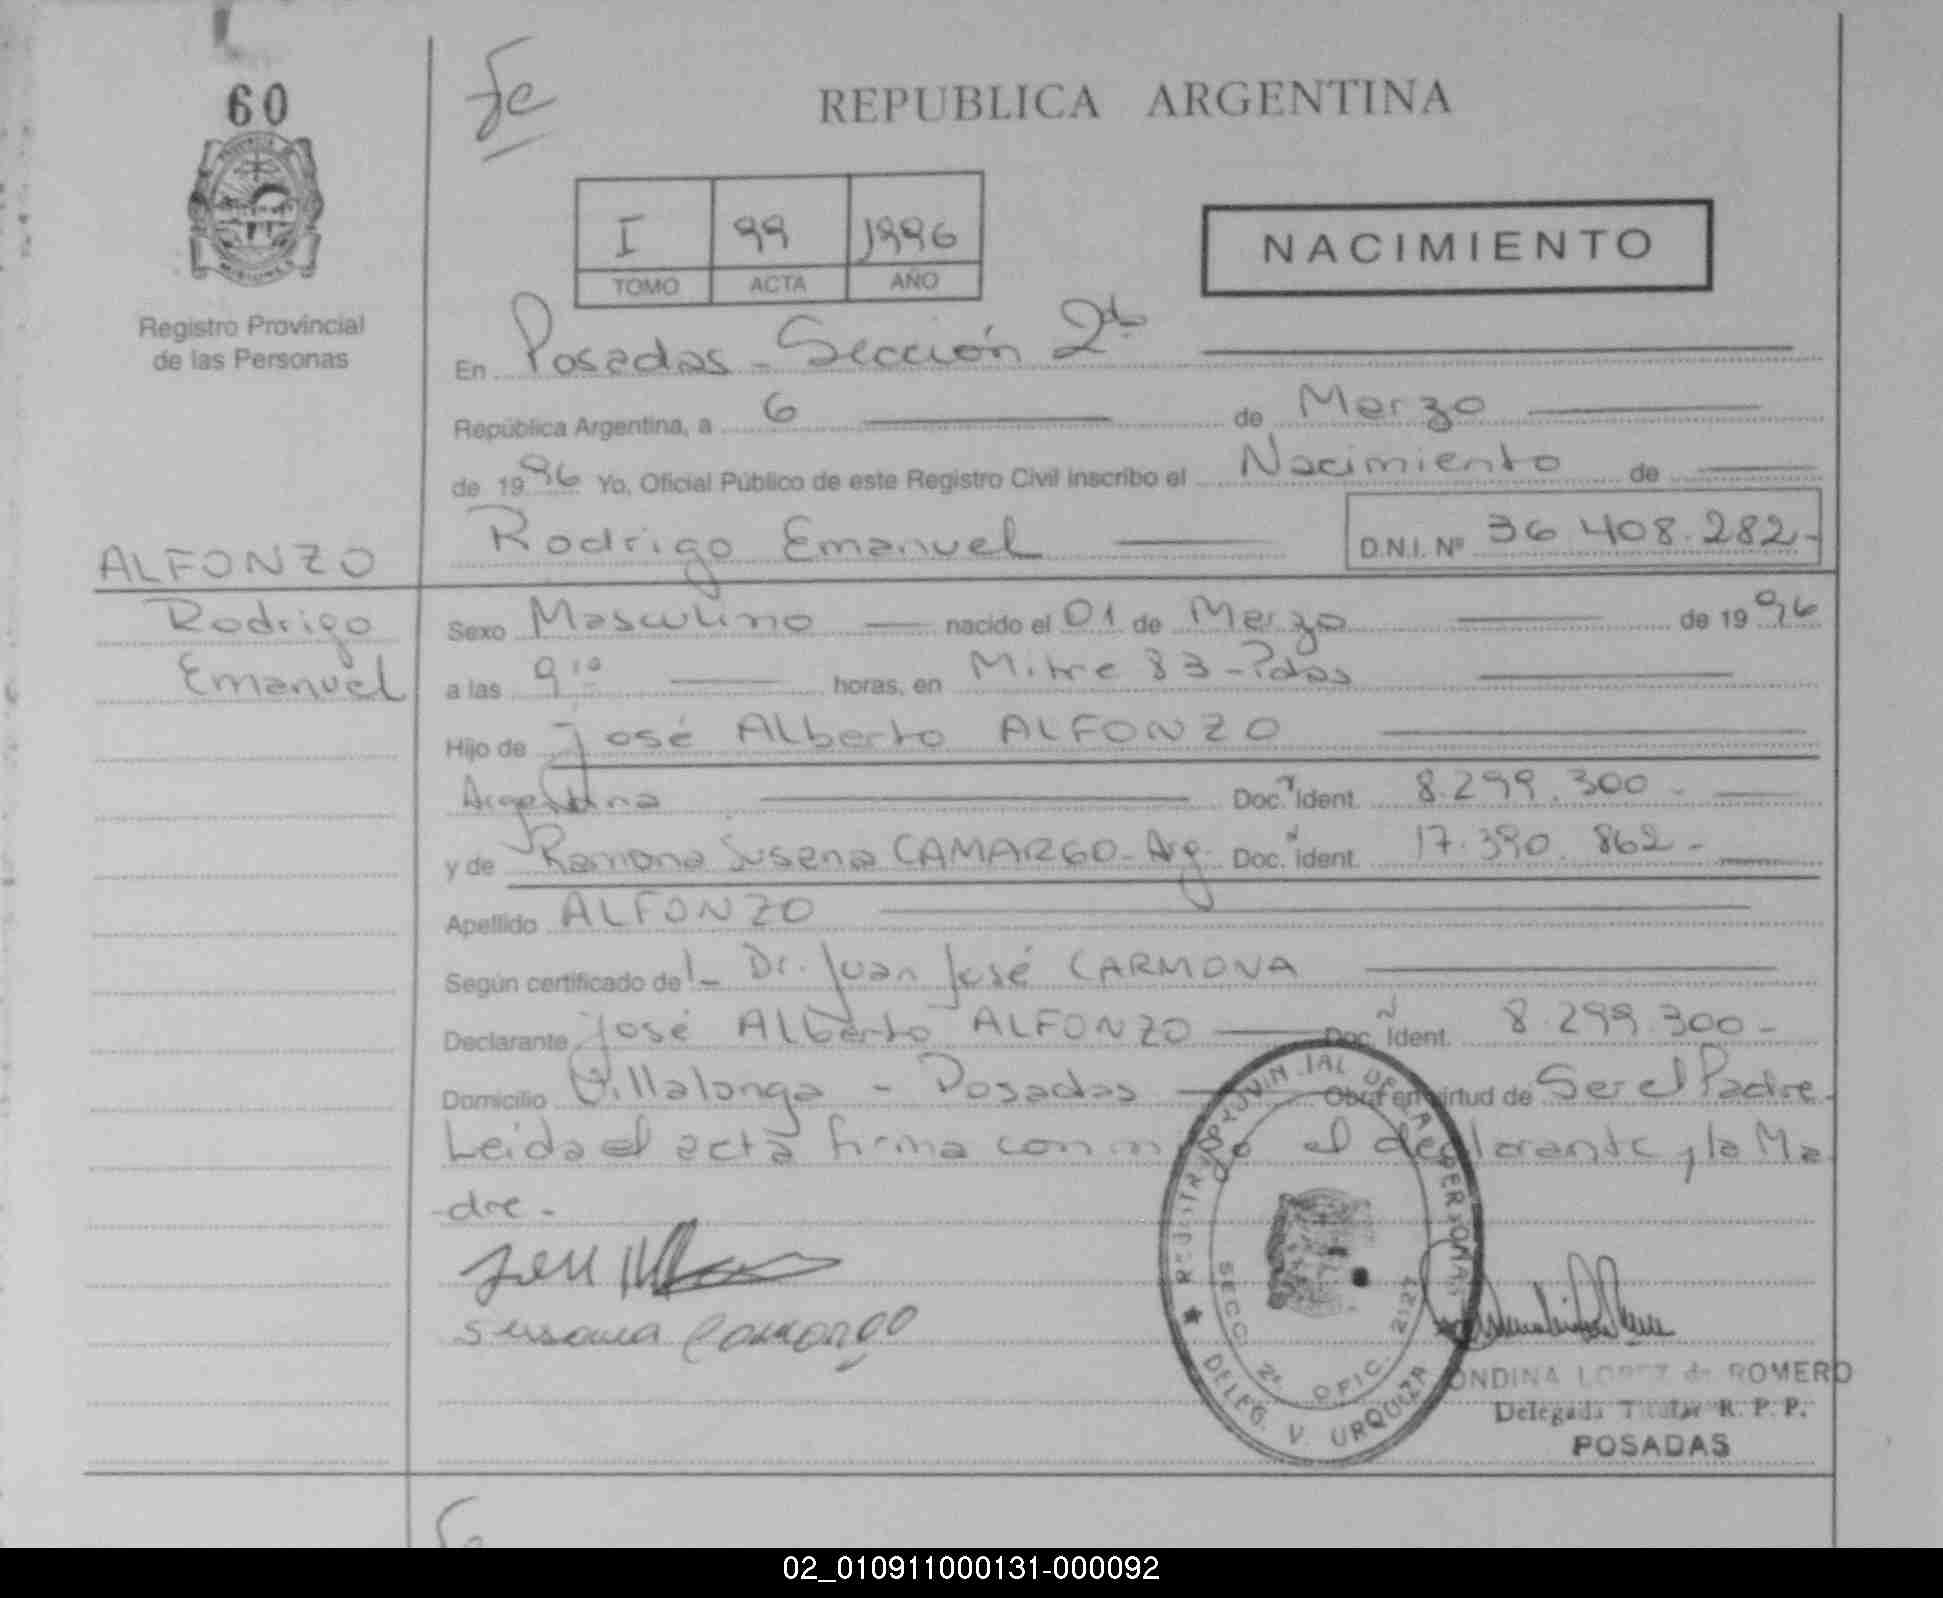 60
Registro Provincial
de las Personas
REPUBLICA ARGENTINA
I 99 1996
TOMO ACTA AÑO
NACIMIENTO
En Posadas - Sección 2ª
República Argentina, a 6 de Marzo
de 1996 Yo, Oficial Público de este Registro Civil inscribo el Nacimiento de
Rodrigo Emanuel D.N.I. Nº 36 408.282-
ALFONZO
Rodrigo
Emanuel
Sexo Masculino nacido el 01 de Marzo de 1996
a las 9 10 horas, en Mitre 83 - Pdas
Hijo de José Alberto ALFONZO
Argentina Doc. Ident. 8.299.300-
y de Ramona Susana CAMARGO - Arg. Doc. Ident. 17.390.862-
Apellido ALFONZO
Según certificado de!- Dr. Juan José CARMONA
Declarante José Alberto ALFONZO Doc. Ident. 8.299.300-
Domicilio Villalonga - Posadas Obra en virtud de Ser el Padre.
Leída el acta firma conmigo el declarante y la Ma
dre.-
Susana Camargo
REGISTRO PROVINCIAL DE LAS PERSONAS
SECC. 2ª OFIC. 2121
DELEG. V. URQUIZA
ONDINA LOPEZ de ROMERO
Delegada Titular R. P. P.
POSADAS
02_010911000131-000092